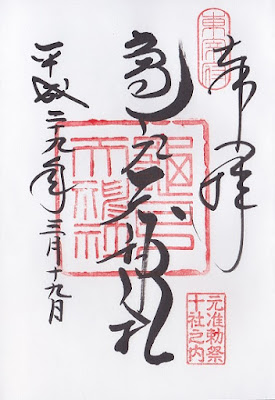 東宰府
奉拝
元准勅祭
十社之内
亀戸天神社
龜戸
天神社
平成二十九年三月十九日